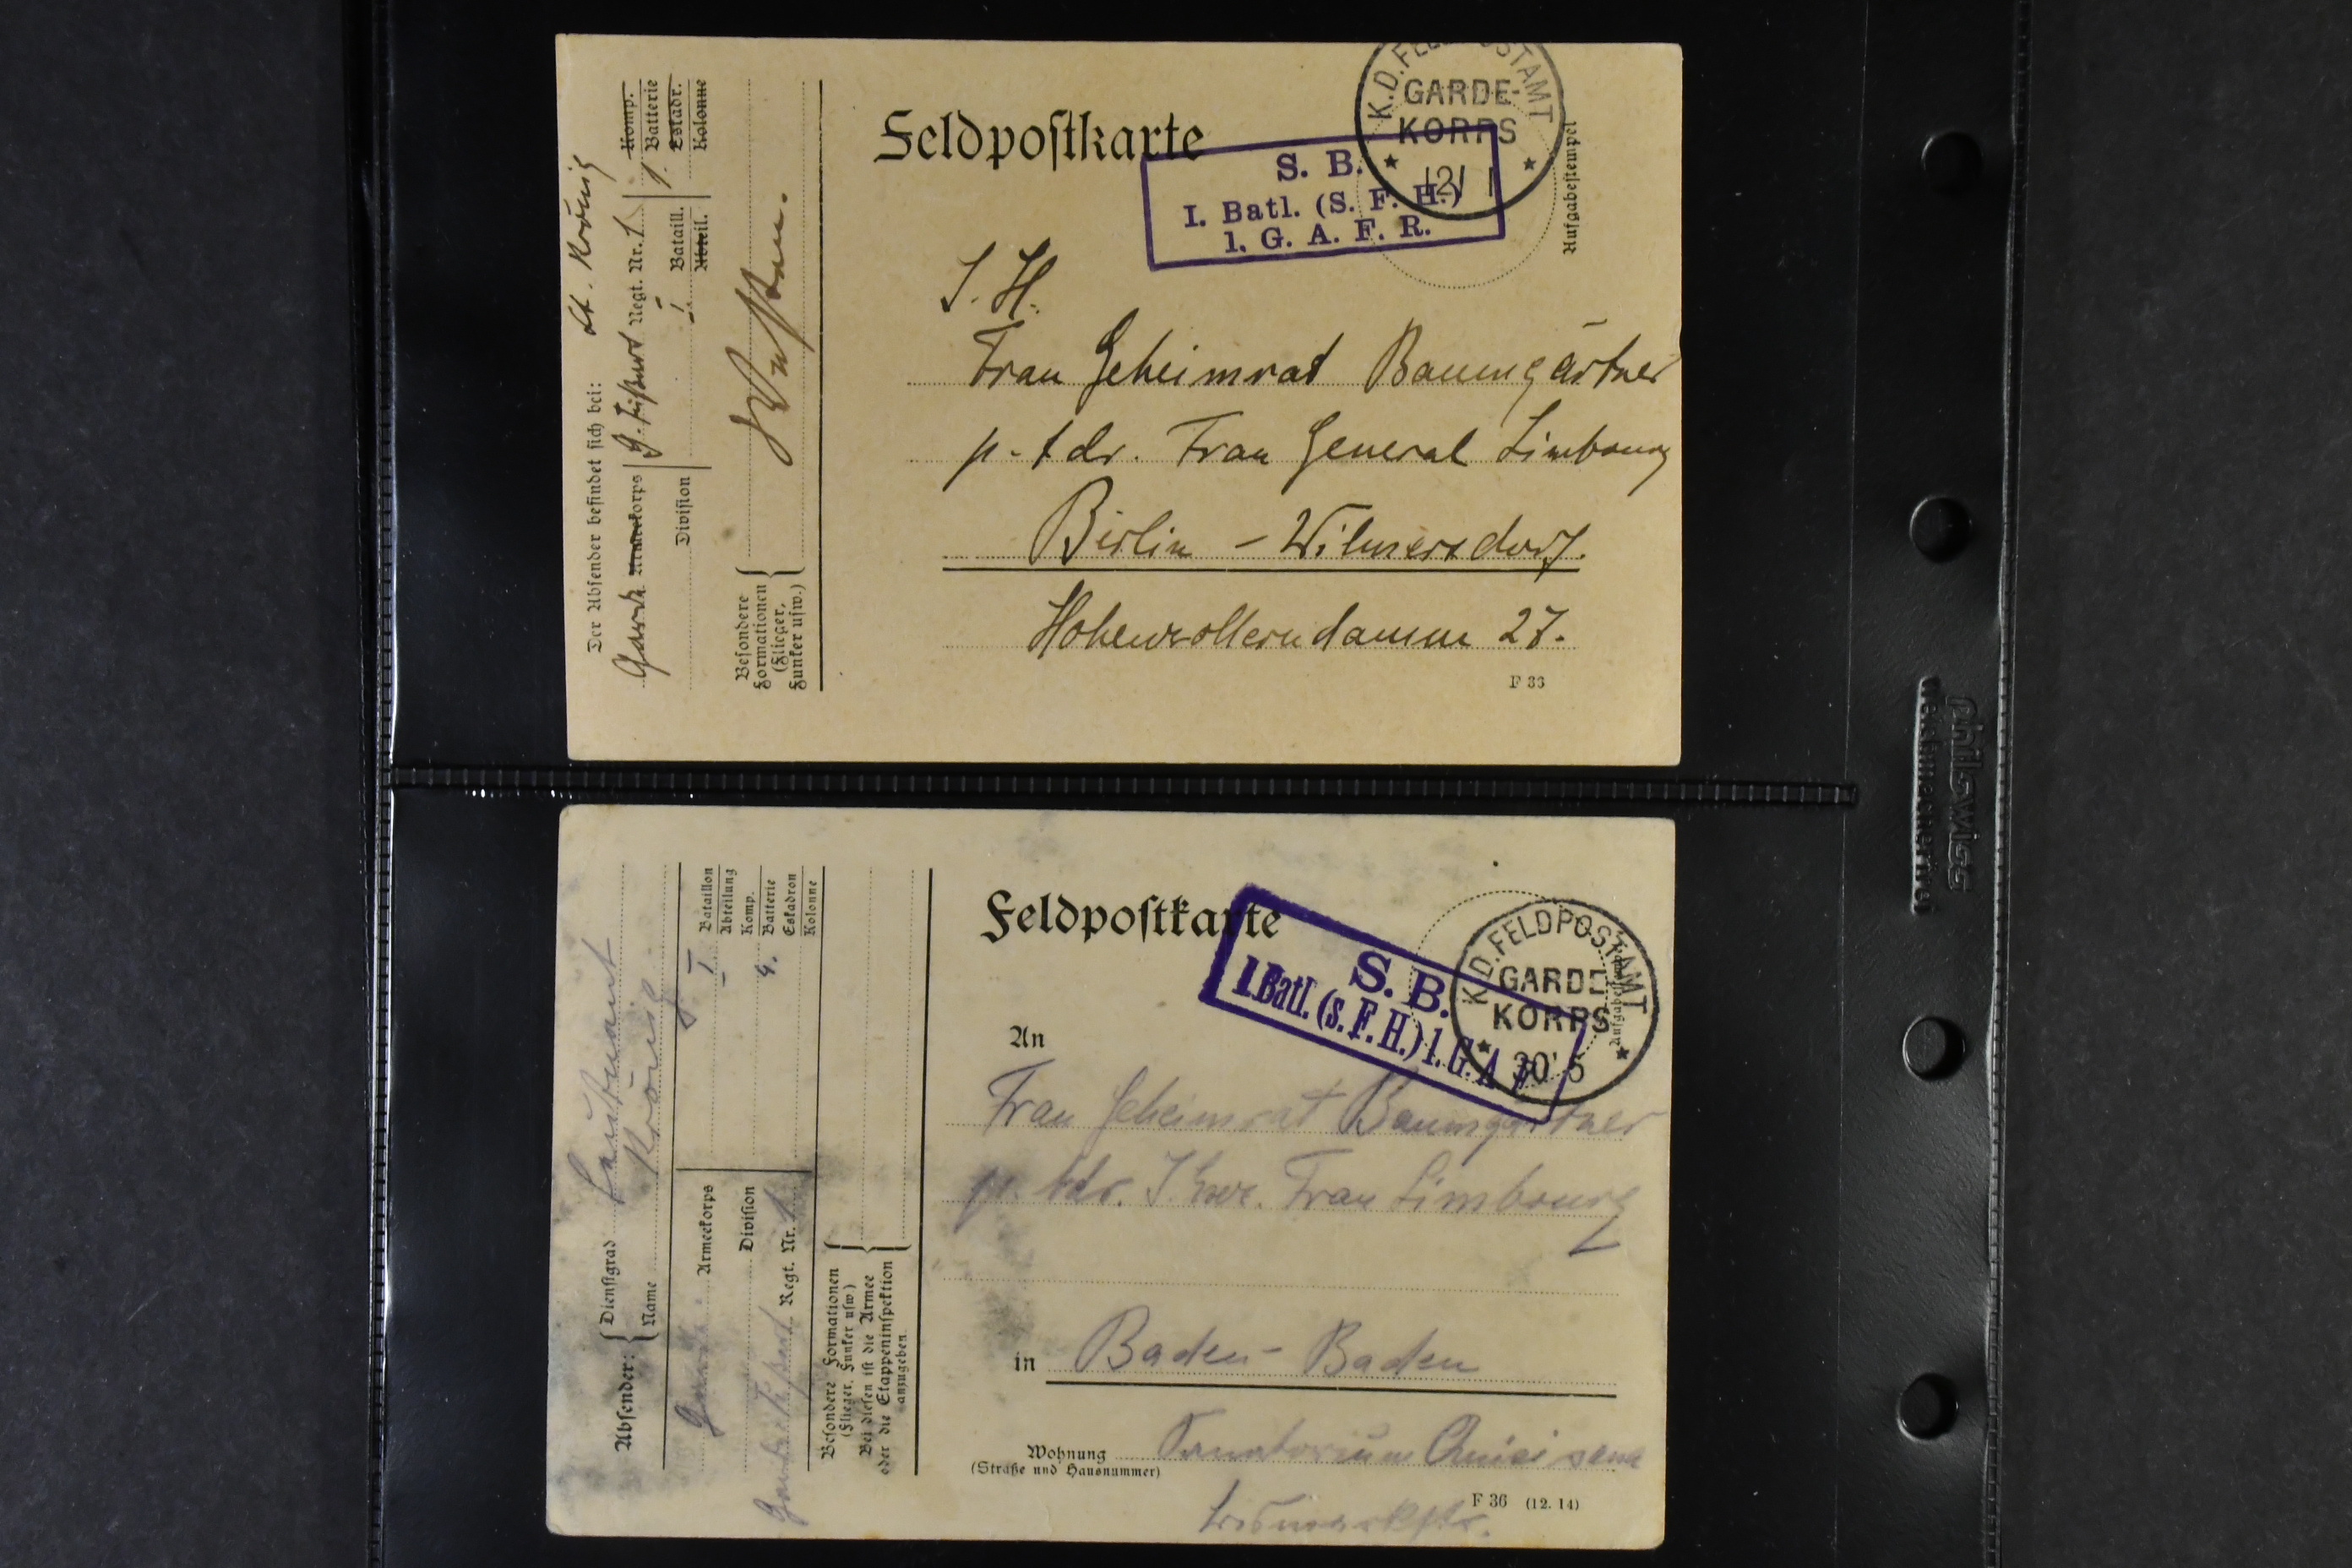 Feldpostkarte
K.D. FELDPOSTAMT
GARDE-
KORPS
12/ 1
Aufgabestempel
S. B.
I. Batl. (S. F. H.)
1. G. A. F. R.
Der Absender befindet sich bei:
Lt. König
Garde Armeekorps
Division
Regt. Nr. 1
I. Bataill.
Abteil.
1. Komp.
Batterie
Eskadr.
Kolonne
Besondere
Formationen
(Flieger,
Funker usw.)
Westen.
Frau Geheimrat Baumgärtner
p. Adr. Frau General Limbourg
Berlin - Wilmersdorf.
Hohenzollerndamm 27.
F 33
Feldpostkarte
K.D. FELDPOSTAMT
GARDE
KORPS
30 5
S. B.
I. Batl. (s. F. H.) 1. G. A F
Absender:
Dienstgrad Leutnant
Name König
Garde Armeekorps
Division
Regt. Nr. 1
I Bataillon
Abteilung
Komp.
4. Batterie
Eskadron
Kolonne
Besondere Formationen
(Flieger, Funker usw.)
Bei diesen ist die Armee
oder die Etappeninspektion
anzugeben.
An
Frau Geheimrat Baumgärtner
p. Adr. Frau Limbourg
in Baden-Baden
Wohnung Sanatorium
(Straße und Hausnummer)
F 36 (12. 14)
philswiss